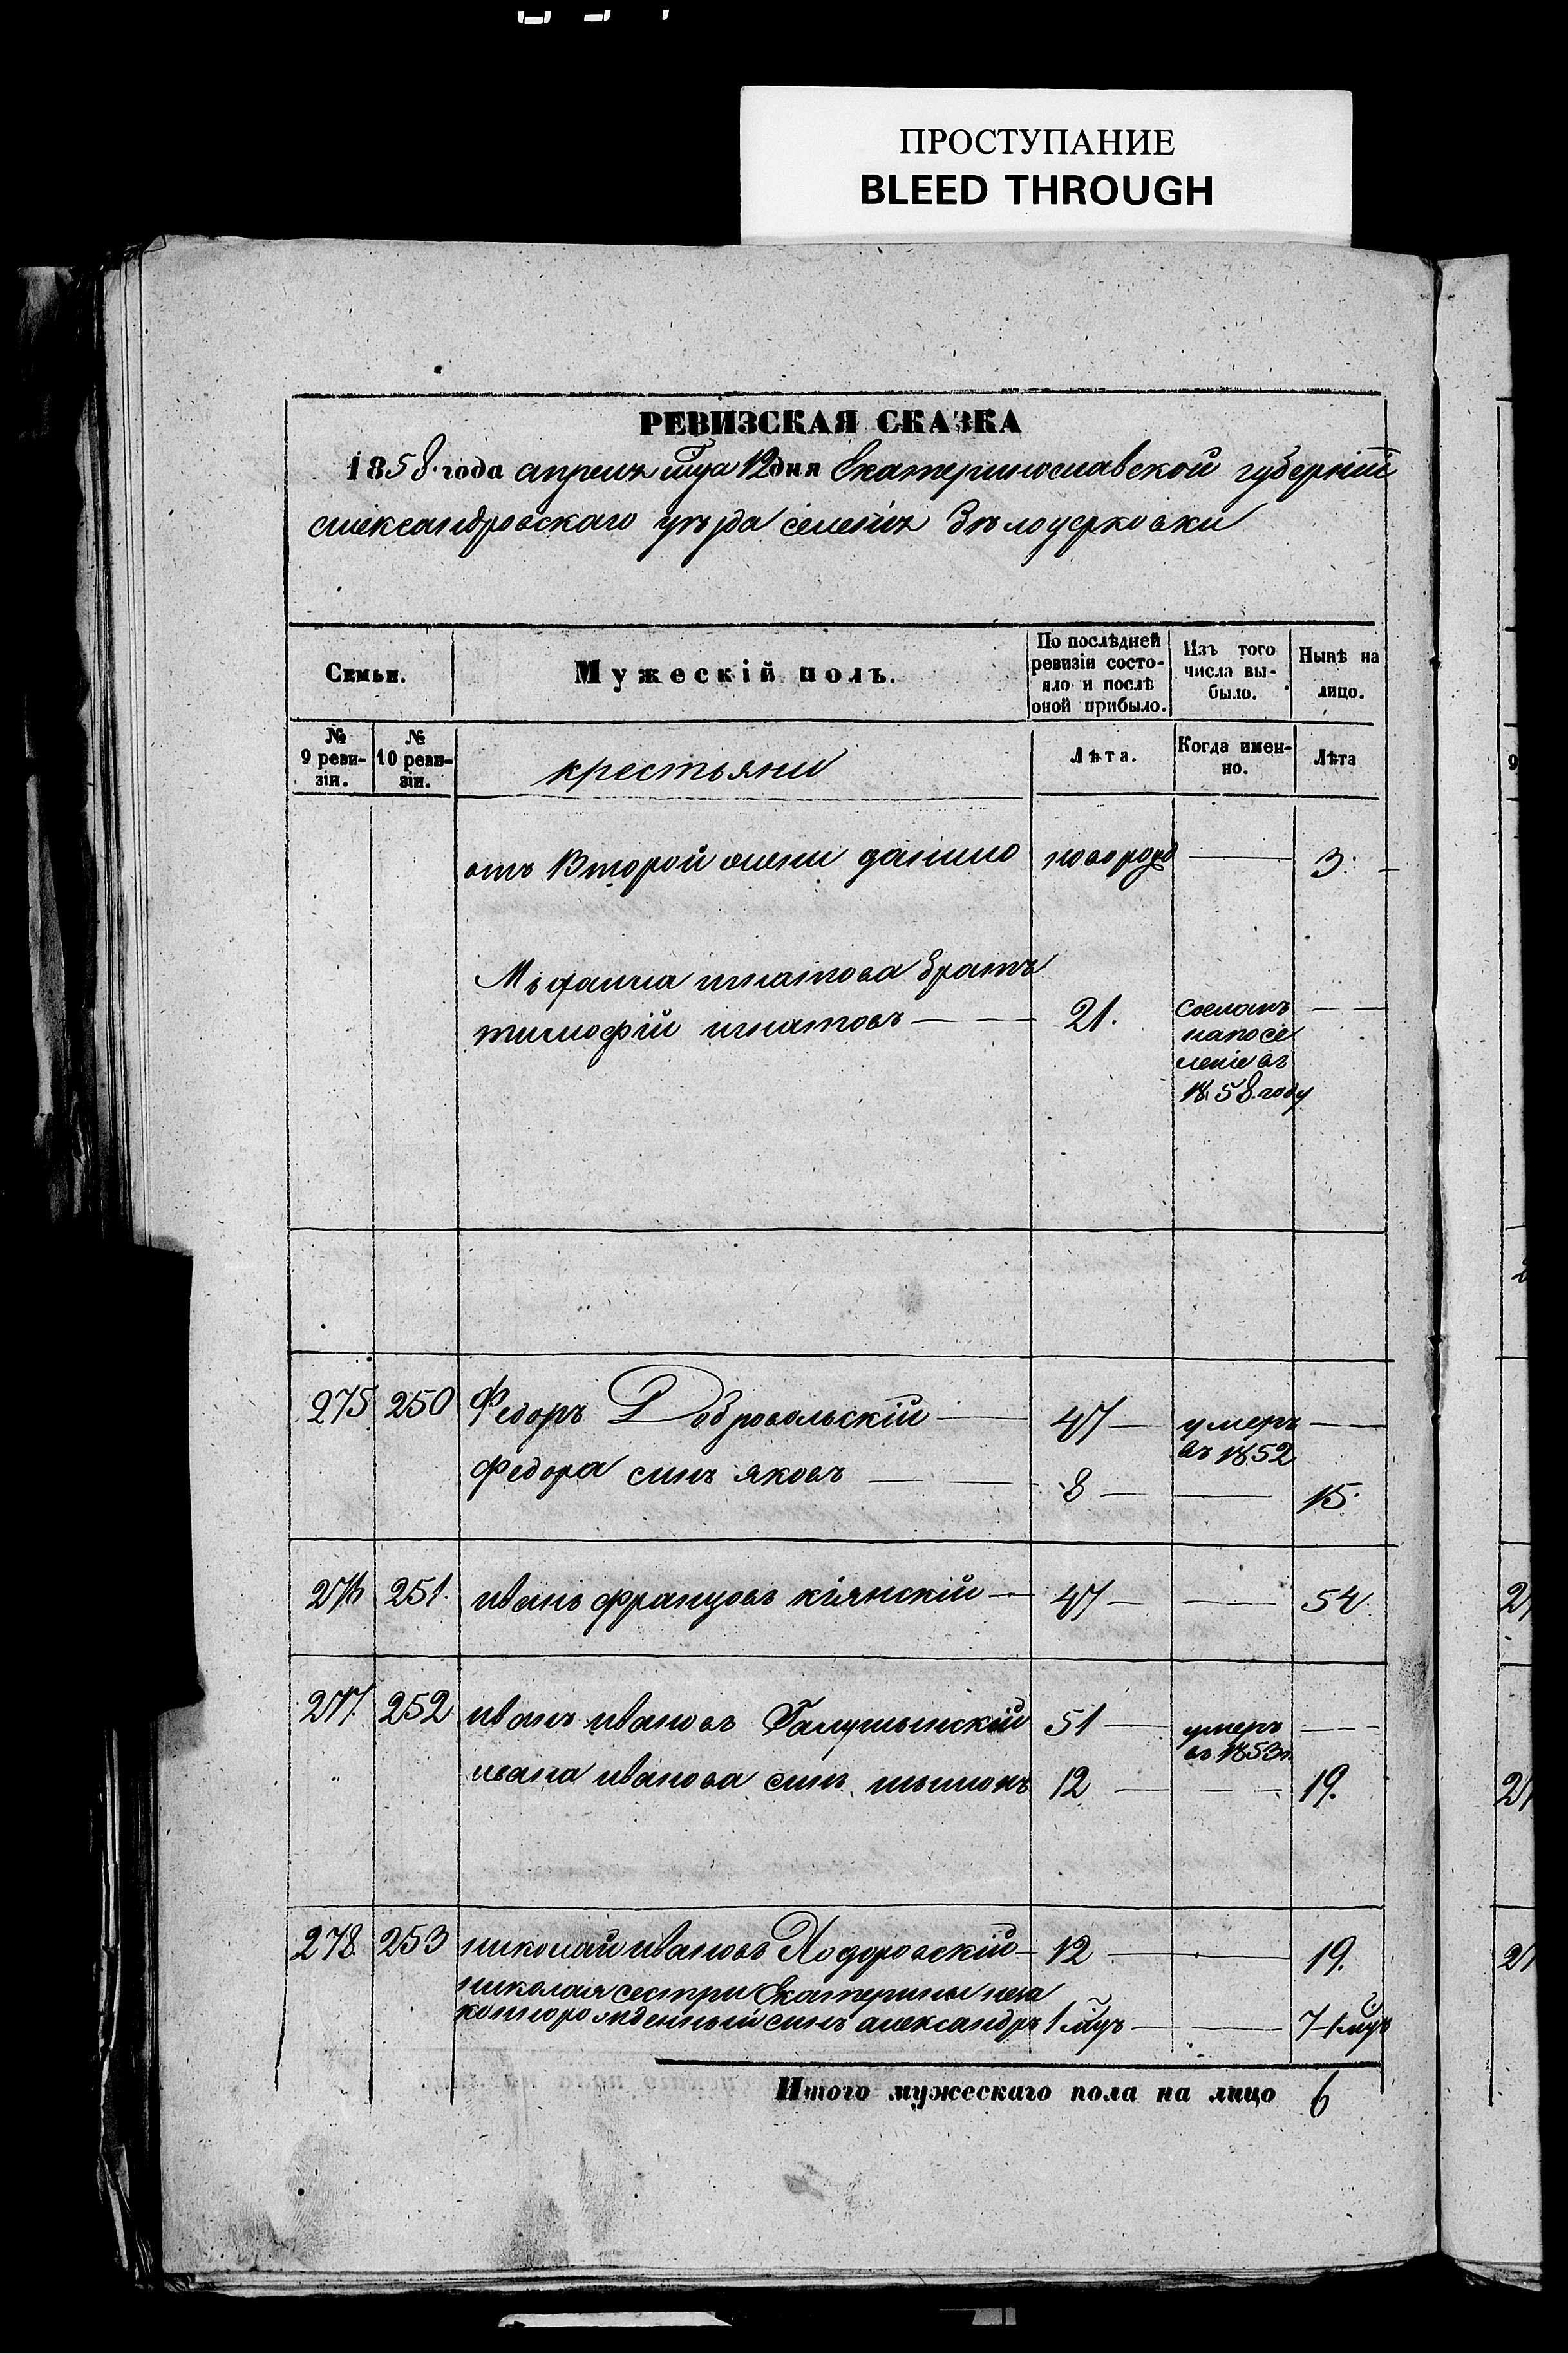 ПРОСТУПАНИЕ
BLEED THROUGH
РЕВИЗСКАЯ СКАЗКА
1858 года апреля мца 12 дня Екатеринославской губерніи
александровскаго уѣзда селенія Бѣлоцерковки
Семьи.
Мужескій полъ.
По послѣдней ревизіи состо-
яло и послѣ оной прибыло.
Изъ того числа вы-
было.
Нынѣ на лицо.
№ 9 реви-
зіи.
№ 10 реви-
зіи.
крестьяни
Лѣта.
Когда имен-
но.
Лѣта
отъ Второй жени данило новорожд — 3.
игнатова братъ
тимофій игнатовъ — 21. сосланъ —
на посе
леніе въ
1858 году
275 250 Федоръ Добровольскій — 47 — умеръ —
въ 1852
Федора синъ яковъ — 8 — — 15.
276 251. иванъ францовъ кіянскій — 47 — — 54.
277. 252 иванъ ивановъ Галушынскій 51 — умеръ —
въ 1853г.
ивана иванова синъ 12 — — 19.
278 253 николай ивановъ Ходоровскій — 12 — — 19.
николая сестри Екатерины неза
коннорожденный синъ александръ 1 мцъ — — 7 1 мцъ
Итого мужескаго пола на лицо 6